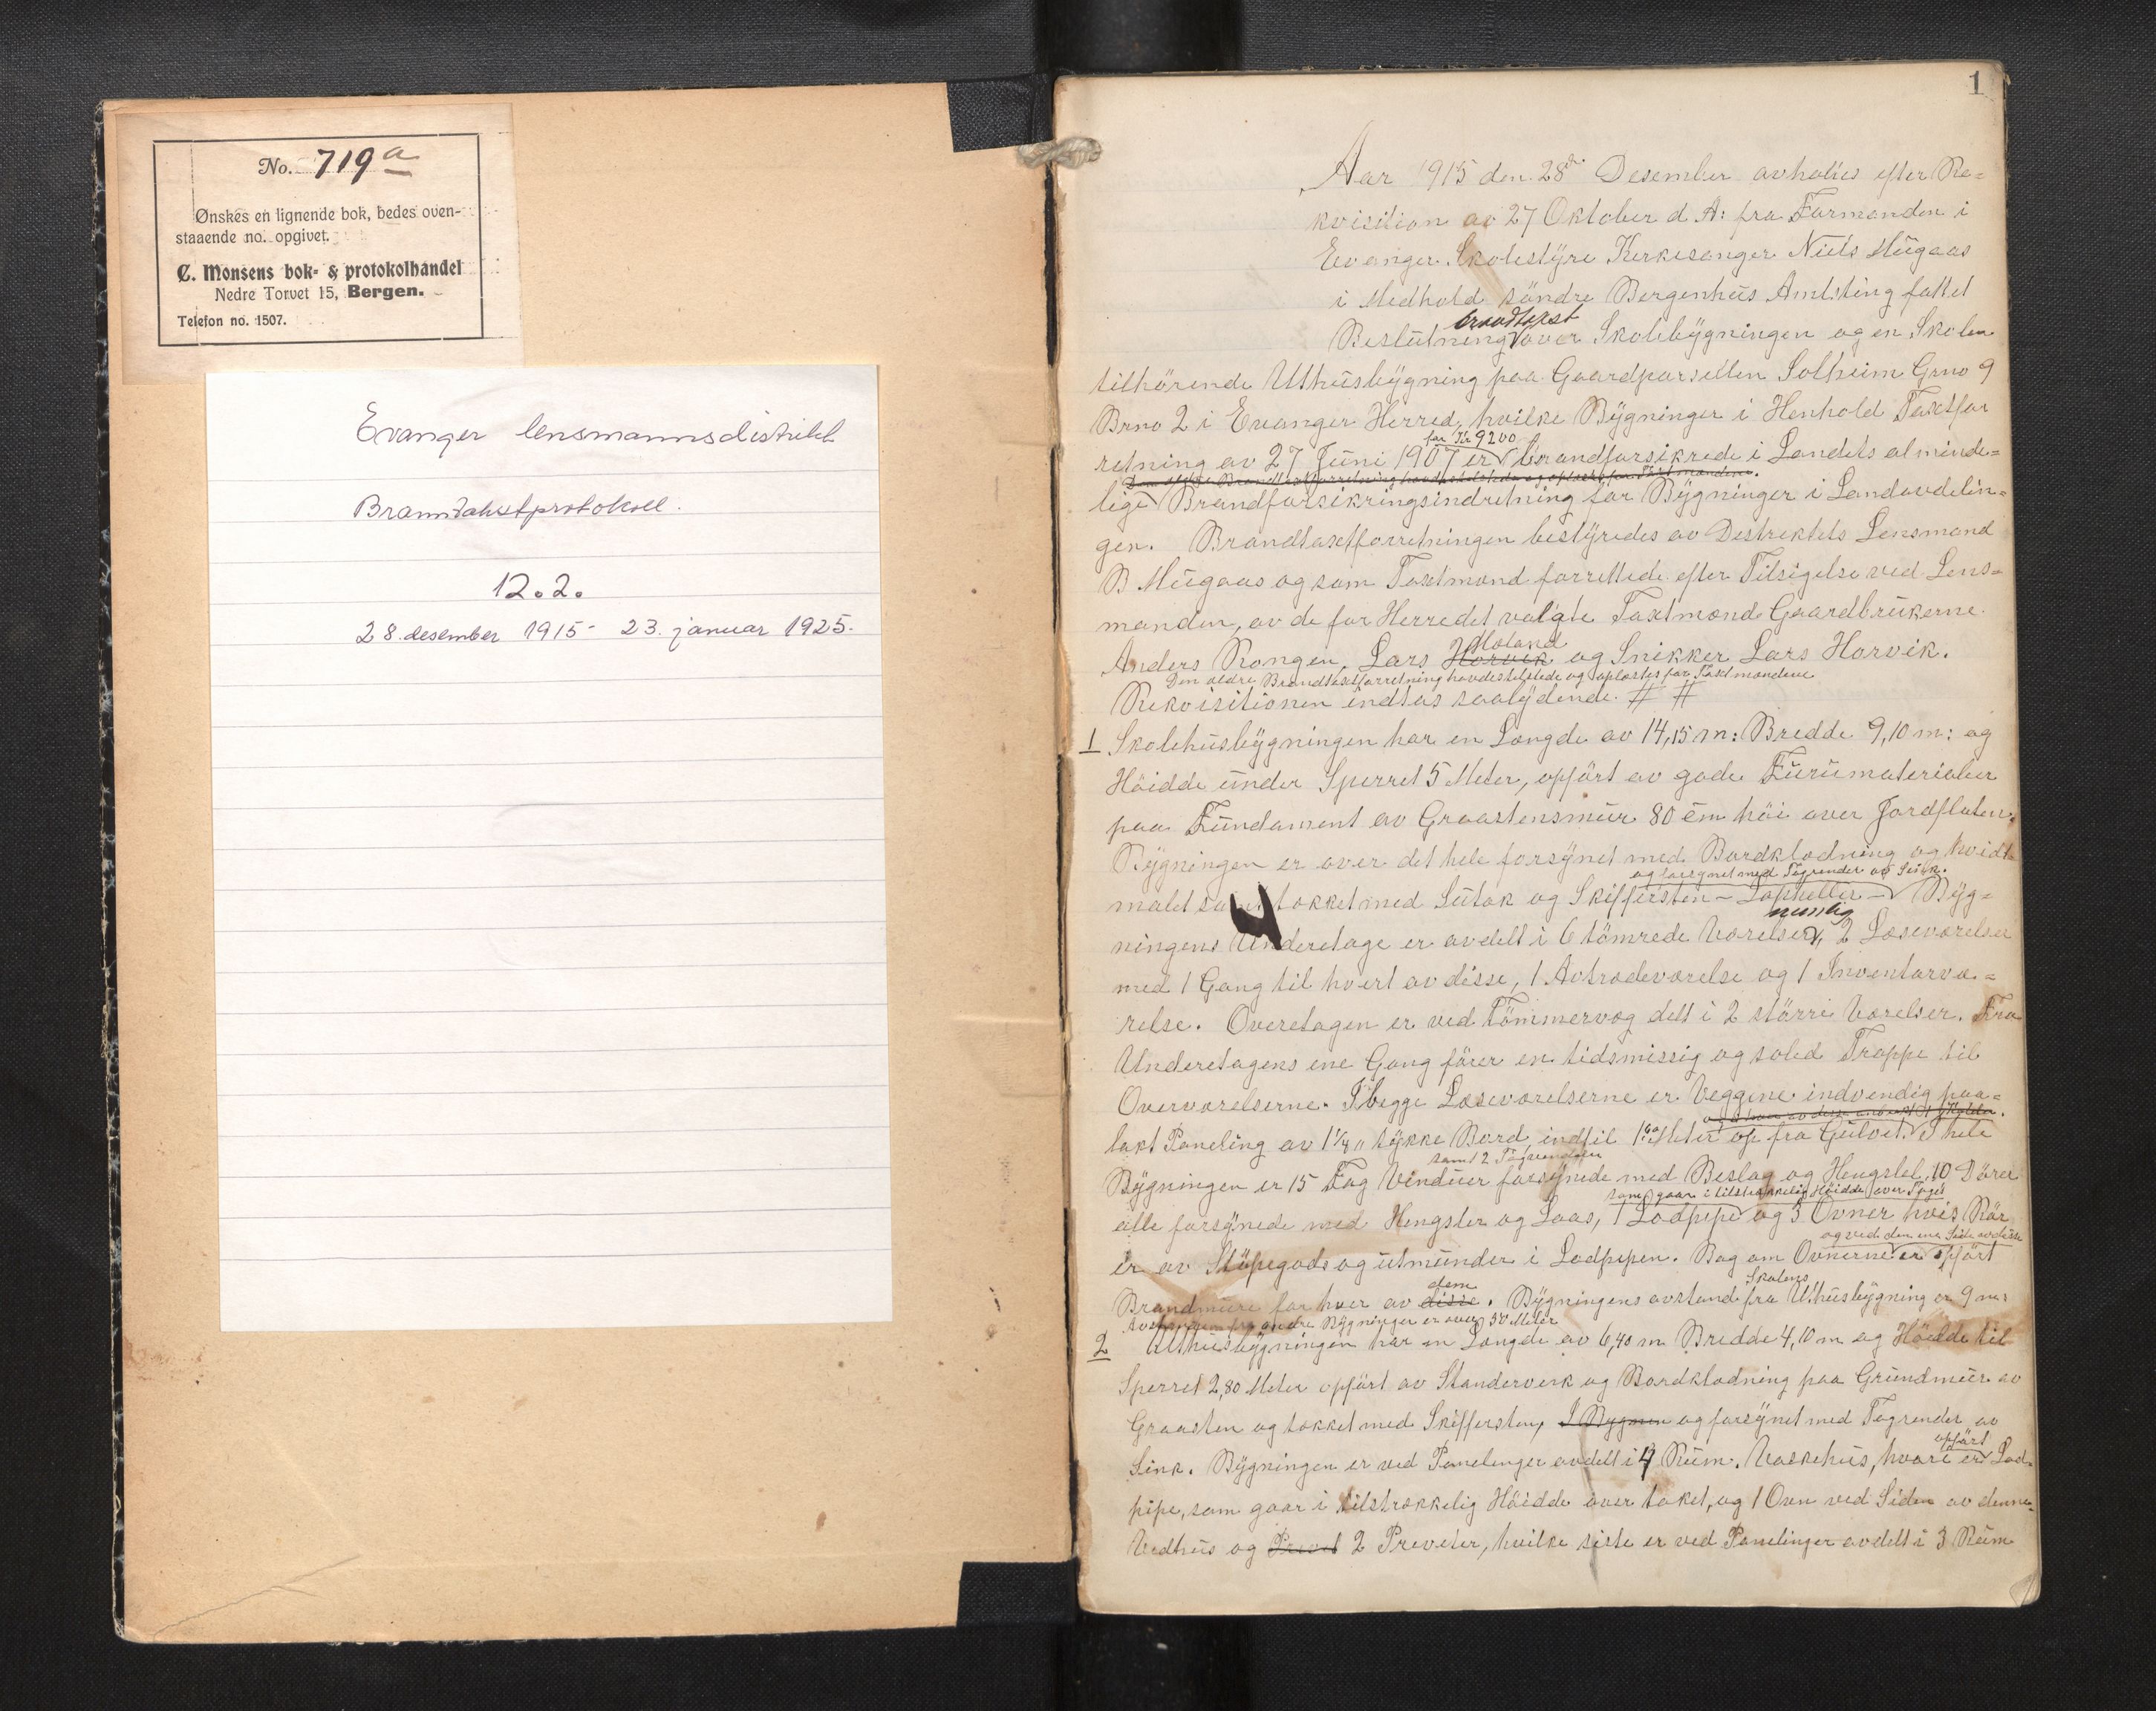 No. 719 a
Ønskes en lignende bok, bedes oven-
staaende no. opgivet.
C. Monsens bok- & protokolhandel
Nedre Torvet 15, Bergen.
Telefon no. 1507.
Evanger lensmannsdistrikt
Branntakstprotokoll.
12.2.
28. desember 1915 - 23. januar 1925.
1
Aar 1915 den 28de Desember avholtes efter Re=
kvisition av 27 Oktober d A: fra Formanden i
Evanger Skolestyre Kirkesanger Niels Mugaas
i Medhold söndre Bergenhus Amtsting fattet
brandtakst
Beslutning over Skolebygningen og en Skolen
tilhörende Uthusbygning paa Gaardparsellen Solheim Grno 9
Brno 2 i Evanger Herred, hvilke Bygninger i Henhold Taxtfor
for Kr 9200
retning av 27 Juni 1907 er brandforsikrede i Landets alminde=
lige Brandforsikringsindretning for Bygninger i Landavdelin=
gen. Brandtaxtforretningen bestyredes av Destriktets Lensmand
B Mugaas og som Taxtmænd forrettede efter Tilsigelse ved Lens=
manden, av de for Herredet valgte Taxtmænd Gaardbrukerne
Möland
Anders Rongen, Lars Horvik og Snikker Lars Horvik.
Den ældre Brandtaxtforretning havdes tilstede og oplæstes for Taxtmændene
Rekvisitionen indtas saalydende. # #
1 Skolehusbygningen har en Længde av 14,15 m: Bredde 9,10 m: og
Höidde under Sperret 5 Meter, opfört av gode Furumaterialier
paa Fundament av Graastensmur 80 cm höi over Jordflaten.
Bygningen er over det hele forsynet med Bordklædning og hvidt
og forsynet med Tagrender av Sink.
malet samt tækket med Sutak og Skiffersten - Lapheller - Byg=
nemlig
ningens Underetage er avdelt i 6 tömrede Værelser, 2 Læseværelser
med 1 Gang til hvert av disse, 1 Avtrædeværelse og 1 Inventarvæ=
relse. Overetagen er ved Tömmervæg delt i 2 större Værelser. Fra
Underetagens ene Gang förer en tidsmessig og solid Trappe til
Overværelserne. I begge Læseværelserne er Veggene indvendig paa=
lakt Paneling av 1 1/4" tykke Bord indtil 1,60 Meter op fra Gulvet. I hele
samt 2 Tagvinduer
Bygningen er 15 Fag Vinduer forsynede med Beslag og Hengsler, 10 Dörer
som gaar i tilstrækkelig Höidde over Taget
alle forsynede med Hengsler og Laas, 1 Lodpipe og 3 Ovner hvis Rör
og ved den ene Side av disse
er av Stöpegods og utmunder i Lodpipen. Bag om Ovnerne er opfört
dem Skolens
Brandmure for hver av disse. Bygningens avstand fra Uthusbygning er 9 m:
Avstanden fra andre Bygninger er over 30 Meter
2 Uthusbygningen har en Længde av 6,40 m Bredde 4,10 m og Höidde til
Sperret 2,80 Meter opfört av Standerverk og Bordklædning paa Grundmur av
Graasten og tækket med Skiffersten, I Bygnen og forsynet med Tagrender av
opfört
Sink. Bygningen er ved Panelinger avdelt i 4 Rum. Vaskehus, hvori er Lod=
pipe, som gaar i tilstrækkelig Höidde over taket, og 1 Ovn ved Siden av denne=
Vedhus og Prevet 2 Preveter, hvilke siste er ved Panelinger avdelt i 3 Rum